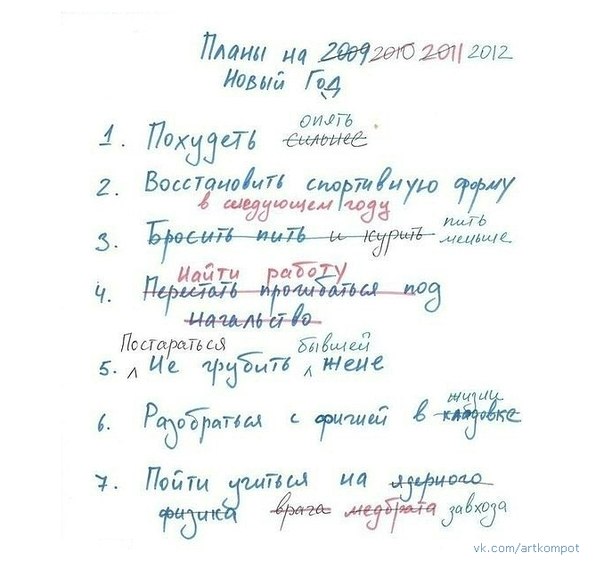 Планы на 2009 2010 2011 2012
Новый Год
опять
1. Похудеть сильнее
2. Восстановить спортивную форму
в следующем году
пить
3. Бросить пить и курить меньше
Найти работу
4. Перестать прогибаться под
начальство
Постараться бывшей
5. Не грубить жене
жизни
6. Разобраться с фигнёй в кладовке
7. Пойти учиться на ядерного
физика врача медбрата завхоза
vk.com/artkompot